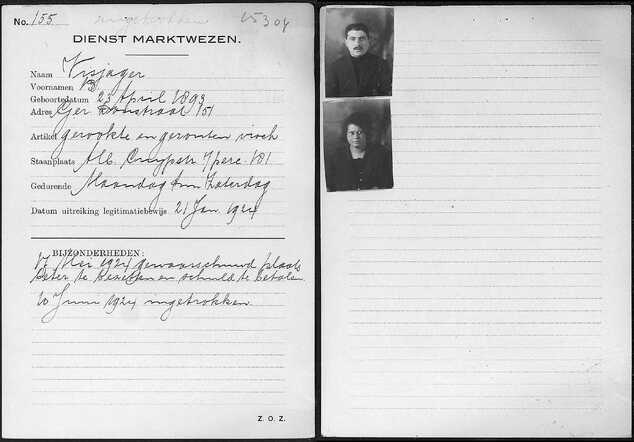 No. 155 ingetrokken 15304
DIENST MARKTWEZEN.
Naam Visjager
Voornamen B
Geboortedatum 23 April 1893
Adres Ger Doustraat 151
Artikel gerookte en gezouten visch
Staanplaats Alb. Cuypstr perc. 181
Gedurende Maandag t/m Zaterdag
Datum uitreiking legitimatiebewijs 21 Jan. 1924
BIJZONDERHEDEN:
17 Mei 1924 gewaarschuwd plaats
beter te bezetten en schuld te betalen
20 Juni 1924 ingetrokken.
Z. O. Z.